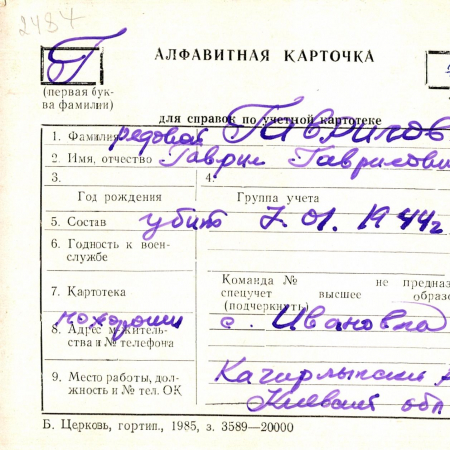 2484
Г
АЛФАВИТНАЯ КАРТОЧКА
(первая бук-
ва фамилии)
для справок по учетной картотеке
1. Фамилия рядовой Гаврилов
2. Имя, отчество Гаврил Гаврилови
3.
4.
Год рождения
Группа учета
5. Состав убит 7.01.1944г
6. Годность к воен-
службе
Команда № не предназ
7. Картотека
спецучет высшее образо
(подчеркнуть)
похорощен с. Ивановка
8. Адрес житель-
ства и № телефона
9. Место работы, дол-
жность и № тел. ОК
Киевской обл
Б. Церковь, гортип., 1985, з. 3589—20000